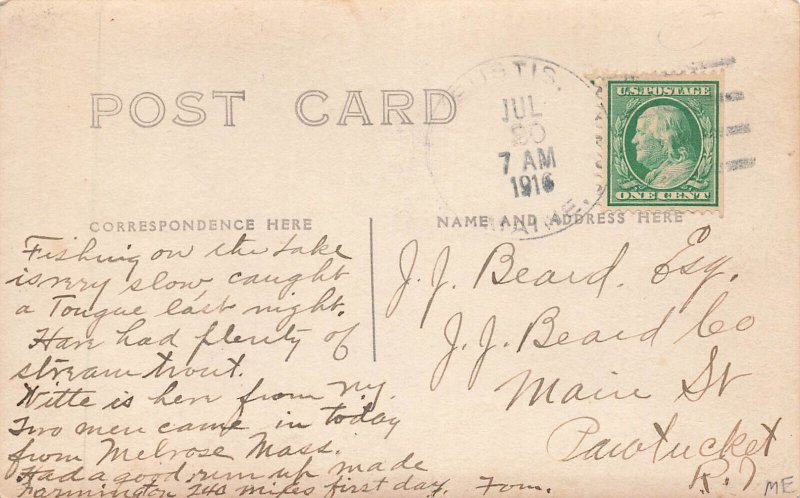 POST CARD
EUSTIS.
JUL
20
7 AM
1916
MAINE.
U.S. POSTAGE
ONE CENT
CORRESPONDENCE HERE
NAME AND ADDRESS HERE
Fishing on the Lake
is very slow, caught
a Togue last night.
Have had plenty of
stream trout.
Witte is here from N.Y.
Two men came in today
from Melrose Mass.
Had a good run up made
Farmington 240 miles first day. Tom.
J. J. Beard. Esq.
J. J. Beard Co
Main St
Pawtucket
R. I
ME